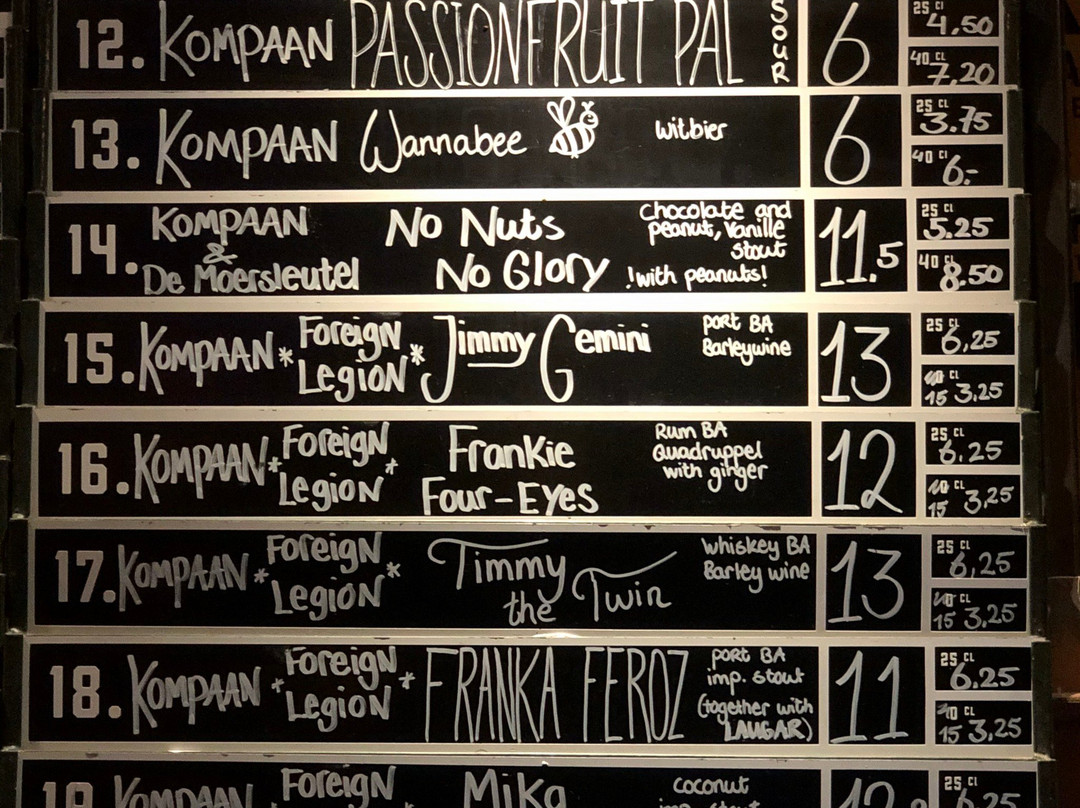 12. KOMPAAN PASSIONFRUIT PAL SOUR 6 25 CL 4.50
40 CL 7,20
13. KOMPAAN Wannabee witbier 6 25 CL 3.75
40 CL 6.-
14. KOMPAAN & De Moersleutel
No Nuts
No Glory
Chocolate and
peanut, Vanille
stout
!with peanuts!
11.5
25 CL 5.25
40 CL 8.50
15. KOMPAAN * Foreign Legion * Jimmy Gemini
port BA
Barleywine
13
25 CL 6,25
15 CL 3,25
16. KOMPAAN * Foreign Legion *
Frankie
Four-Eyes
Rum BA
Quadruppel
with ginger
12
25 CL 6,25
15 CL 3,25
17. KOMPAAN * Foreign Legion *
Timmy
the Twin
Whiskey BA
Barley wine
13
25 CL 6,25
15 CL 3,25
18. KOMPAAN * Foreign Legion * FRANKA FEROZ
port BA
imp. stout
(together with
LAUGAR)
11
25 CL 6.25
15 CL 3,25
KOMPAAN Foreign Mika
coconut
25 CL